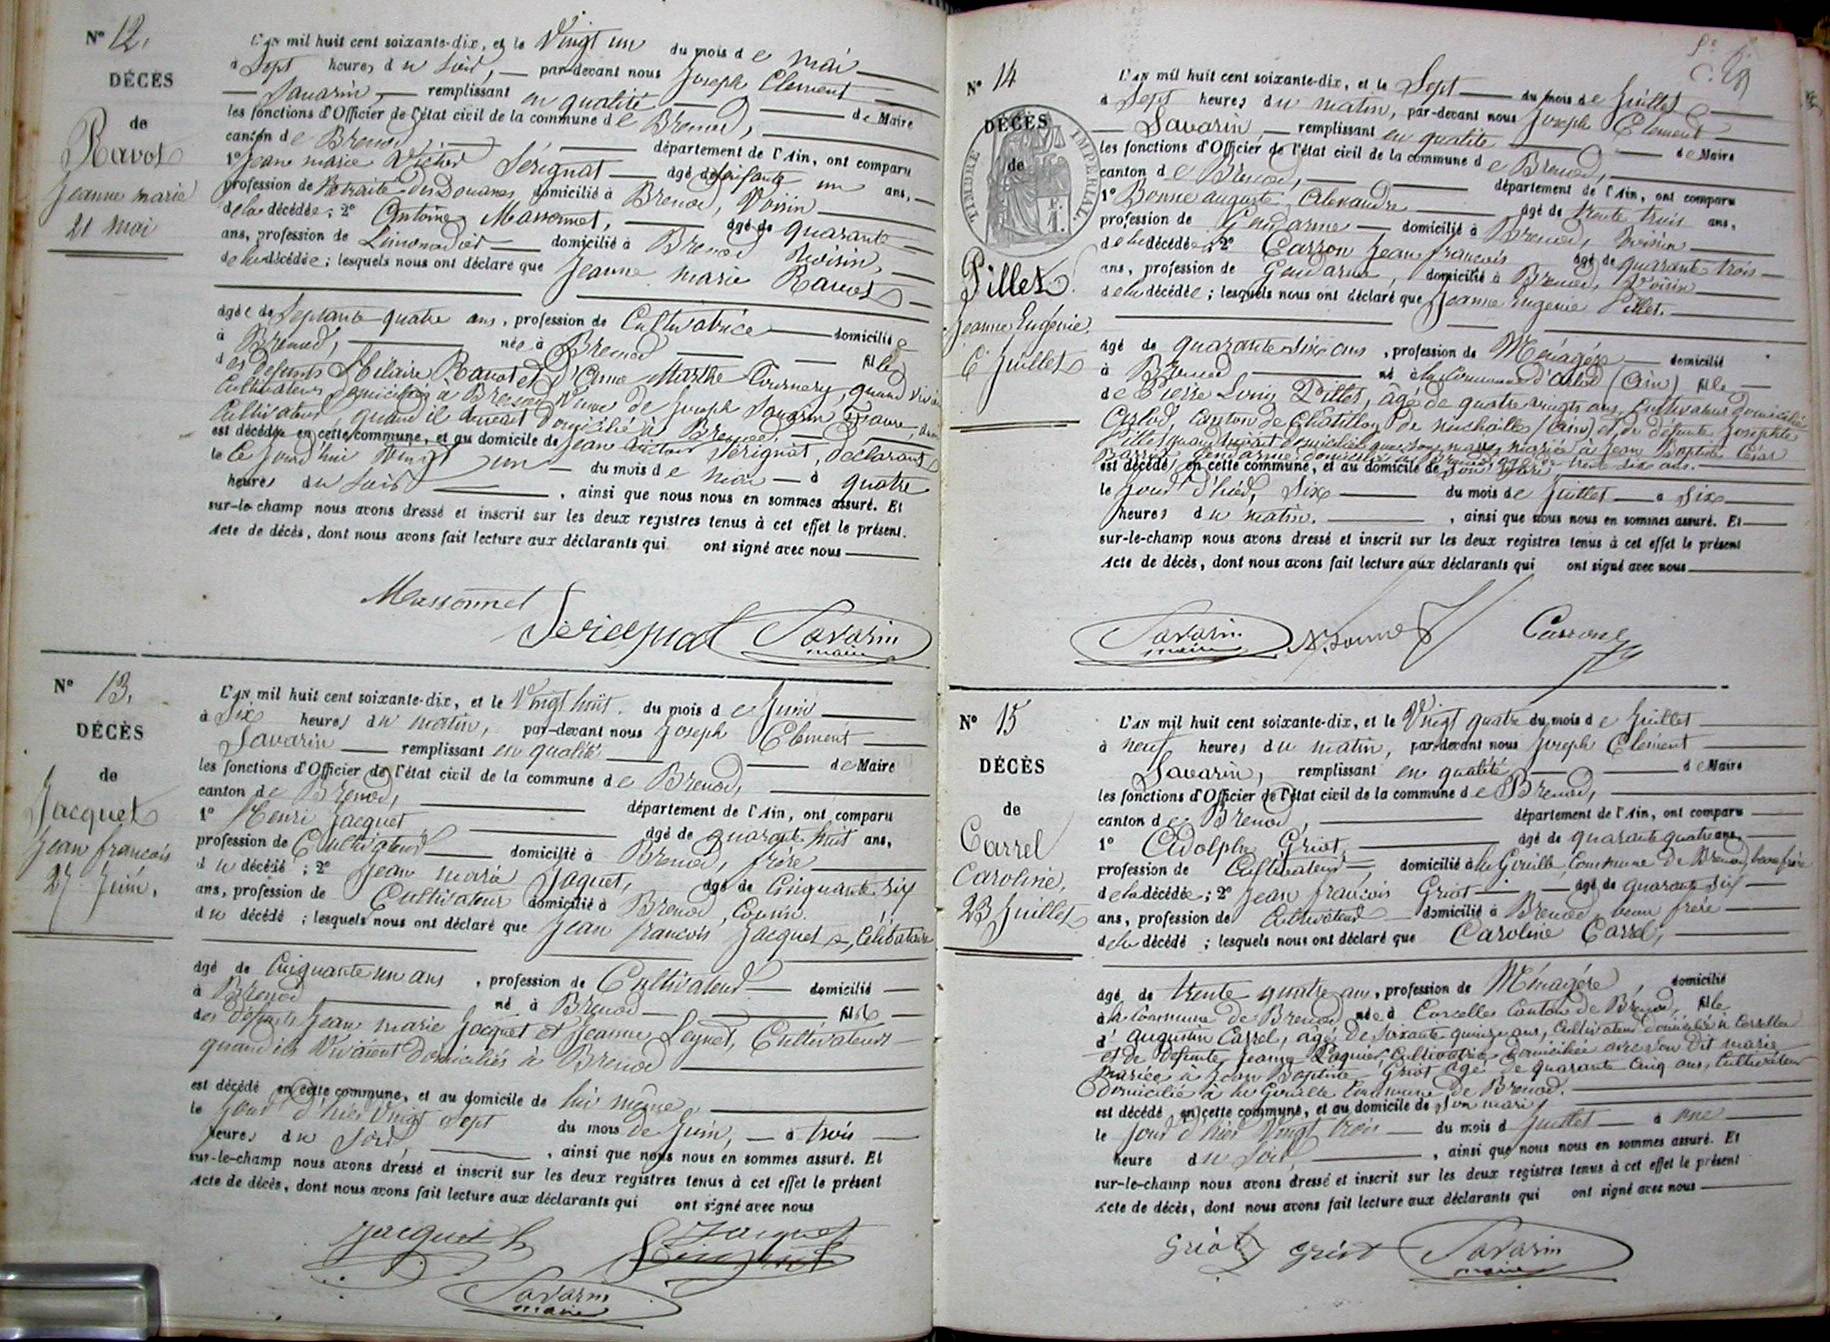 N° 12.
DÉCÈS
de
Ravot
Jeanne marie
21 mai
L'AN mil huit cent soixante-dix, et le Vingt un du mois de mai
à Sept heures du Soir, par-devant nous Joseph Clément
Savarin, remplissant en qualité de Maire
les fonctions d'Officier de l'état civil de la commune de Brenod,
canton de Brenod, département de l'Ain, ont comparu
1° Jean marie Victor Sérignat âgé de soixante un ans,
profession de Retraité des Douanes domicilié à Brenod, Voisin
de la décédée; 2° Antoine Massonnet, âgé de quarante
ans, profession de Limonadier domicilié à Brenod Voisin,
de la décédée; lesquels nous ont déclaré que Jeanne marie Ravot
âgée de Septante quatre ans, profession de Cultivatrice domiciliée
à Brenod, née à Brenod fille
des défunts Hilaire Ravot et d'Anne Marthe Tournery, quand vivaient
Cultivateurs domiciliés à Brenod, Veuve de Joseph Savarin
Cultivateur, quand il vivait domicilié à Brenod,
est décédée en cette commune, et au domicile de Jean Victor Sérignat, déclarant
le ce Jourd'hui Vingt un du mois de mai à quatre
heures du Soir, ainsi que nous nous en sommes assuré. Et
sur-le-champ nous avons dressé et inscrit sur les deux registres tenus à cet effet le présent.
Acte de décès, dont nous avons fait lecture aux déclarants qui ont signé avec nous
Massonnet Sérignat Savarin
maire
N° 13.
DÉCÈS
de
Jacquet
Jean françois
27 Juin.
L'AN mil huit cent soixante-dix, et le Vingt huit du mois de Juin
à Six heures du matin, par-devant nous Joseph Clément
Savarin remplissant en qualité de Maire
les fonctions d'Officier de l'état civil de la commune de Brenod,
canton de Brenod, département de l'Ain, ont comparu
1° Henri Jacquet âgé de quarante huit ans,
profession de Cultivateur domicilié à Brenod, frère
du décédé; 2° Jean marie Jaquet, âgé de Cinquante six
ans, profession de Cultivateur domicilié à Brenod, Cousin
du décédé; lesquels nous ont déclaré que Jean françois Jacquet, Célibataire
âgé de Cinquante un ans, profession de Cultivateur domicilié
à Brenod né à Brenod fils
des défunts Jean marie Jacquet et Jeanne Leynet, Cultivateurs
quand ils vivaient domiciliés à Brenod
est décédé en cette commune, et au domicile de lui même,
le Jour d'hier Vingt sept du mois de Juin, à trois
heures du Soir, ainsi que nous nous en sommes assuré. Et
sur-le-champ nous avons dressé et inscrit sur les deux registres tenus à cet effet le présent
Acte de décès, dont nous avons fait lecture aux déclarants qui ont signé avec nous
Jacquet h Jaquet
Savarin
maire
N° 14
TIMBRE IMPÉRIAL.
DÉCÈS
de
Pillet
Jeanne Eugénie.
6 Juillet
L'AN mil huit cent soixante-dix, et le Sept du mois de Juillet
à Sept heures du matin, par-devant nous Joseph Clément
Savarin, remplissant en qualité de Maire
les fonctions d'Officier de l'état civil de la commune de Brenod,
canton de Brenod, département de l'Ain, ont comparu
1° Bonne auguste Alexandre âgé de trente trois ans,
profession de Gendarme domicilié à Brenod, Voisin
de la décédée; 2° Carron Jean françois âgé de quarante trois
ans, profession de Gendarme, domicilié à Brenod, Voisin
de la décédée; lesquels nous ont déclaré que Jeanne Eugénie Pillet.
âgé de quarante six ans, profession de Ménagère domicilié
à Brenod né à la Commune d'Arlod (Ain) fille
de Pierre Louis Pillet, âgé de quatre vingts ans, Cultivateur domicilié
Arlod, Canton de Chatillon de michaille (Ain) et de défunte Josephte
Pillet quand vivait domiciliée avec son mari, mariée à Jean Baptiste César
Gendarme domicilié à Brenod, trente six ans.
est décédé, en cette commune, et au domicile de son mari
le Jour d'hier, Six du mois de Juillet à Six
heures du matin. , ainsi que nous nous en sommes assuré. Et
sur-le-champ nous avons dressé et inscrit sur les deux registres tenus à cet effet le présent
Acte de décès, dont nous avons fait lecture aux déclarants qui ont signé avec nous
Savarin A. Bonne Carron
maire
N° 15
DÉCÈS
de
Carrel
Caroline,
23 Juillet
L'AN mil huit cent soixante-dix, et le Vingt quatre du mois de Juillet
à neuf heures du matin, par-devant nous Joseph Clément
Savarin, remplissant en qualité de Maire
les fonctions d'Officier de l'état civil de la commune de Brenod,
canton de Brenod, département de l'Ain, ont comparu
1° Adolphe Griot, âgé de quarante quatre ans,
profession de Cultivateur, domicilié à la Gouille, Commune de Brenod, beau frère
de la décédée; 2° Jean françois Griot âgé de quarante six
ans, profession de Cultivateur domicilié à Brenod, beau frère
de la décédé; lesquels nous ont déclaré que Caroline Carrel,
âgé de trente quatre ans, profession de Ménagère domicilié
à la Commune de Brenod née à Corcelles Canton de Brenod, fille
d'Augustin Carrel, âgé de soixante quinze ans, Cultivateur domicilié à Corcelles
et de Défunte Jeanne Cultivatrice domiciliée avec son dit mari
mariée à Jean Baptiste Griot âgé de quarante cinq ans, Cultivateur
Domicilié à la Gouille Commune de Brenod.
est décédé, en cette commune, et au domicile de son mari
le Jour d'hier Vingt trois du mois d Juillet à une
heure du Soir, , ainsi que nous nous en sommes assuré. Et
sur-le-champ nous avons dressé et inscrit sur les deux registres tenus à cet effet le présent
Acte de décès, dont nous avons fait lecture aux déclarants qui ont signé avec nous
Griot Griot Savarin
maire